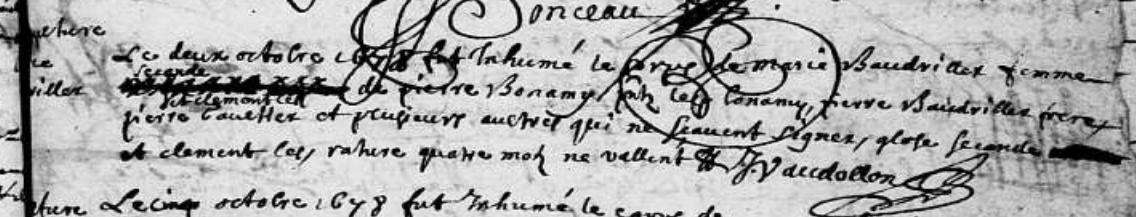 Bonceau
Le deux octobre 1678 fut Inhumé le corps de marie Baudriller femme
seconde
de pierre Bonamy, les Conamy, pierre Baudriller frere
pierre et plusieurs austres qui ne scavent signer, glose seconde
et clement les, rature quatre motz ne vallent J. Vaudollon
Le cinq octobre 1678 fut Inhumé le corps de